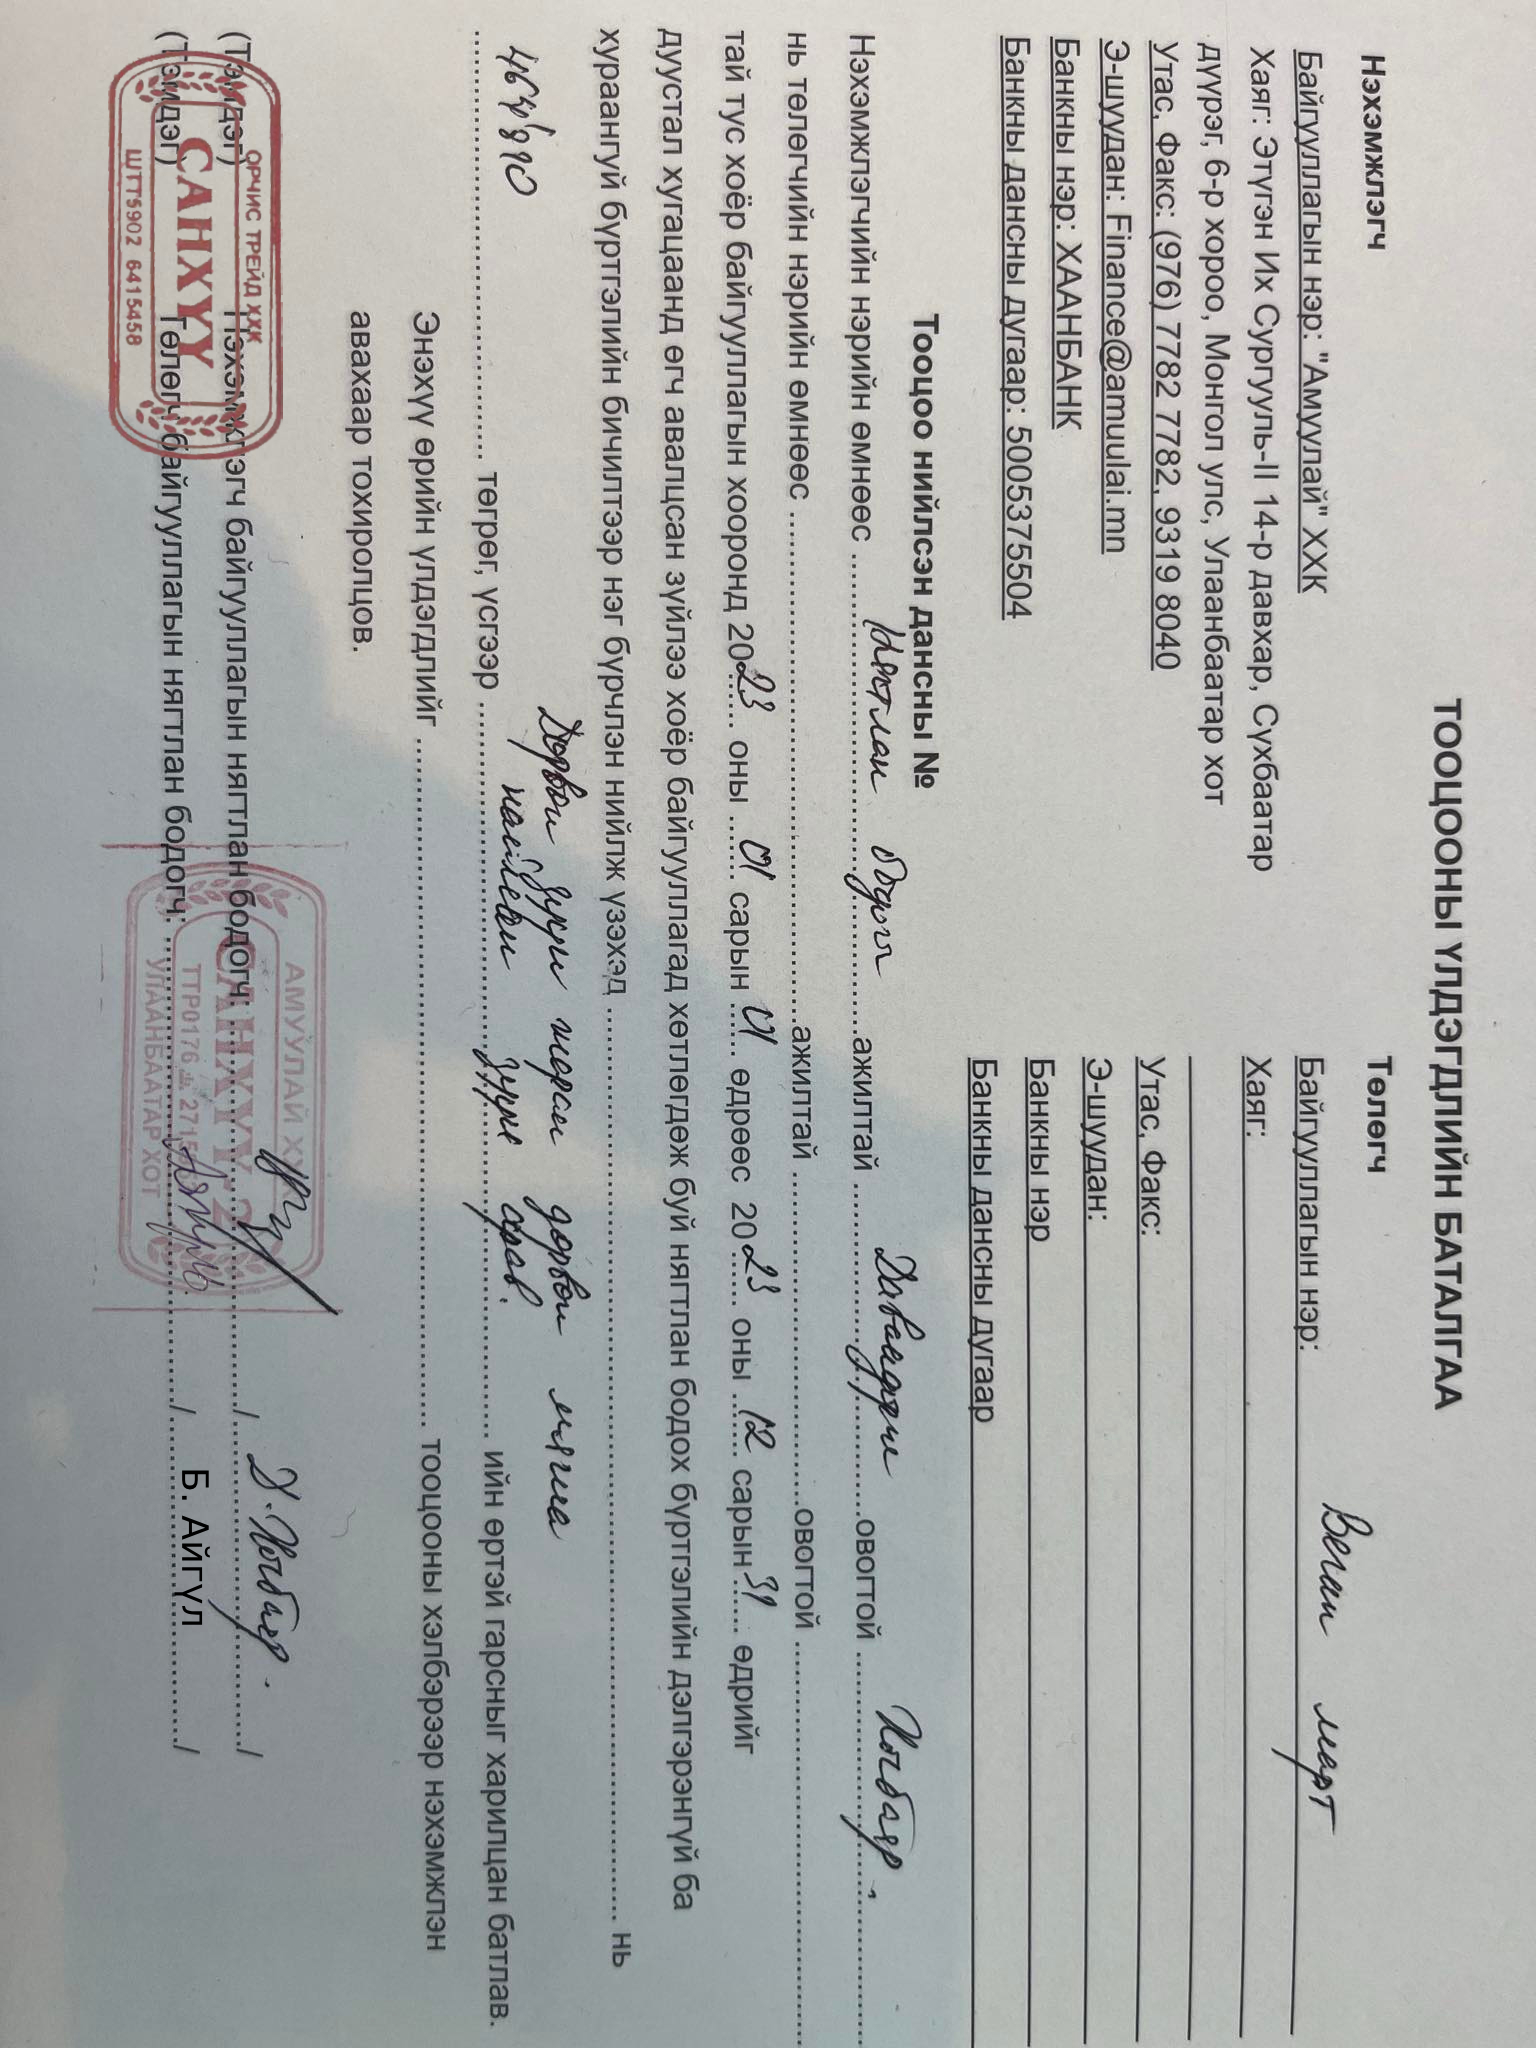 ТООЦООНЫ ҮЛДЭГДЛИЙН БАТАЛГАА
Нэхэмжлэгч
Байгууллагын нэр: "Амуулай" ХХК
Хаяг: Этүгэн Их Сургууль-II 14-р давхар, Сүхбаатар
дүүрэг, 6-р хороо, Монгол улс, Улаанбаатар хот
Утас, Факс: (976) 7782 7782, 9319 8040
Э-шуудан: Finance@amuulai.mn
Банкны нэр: ХААНБАНК
Банкны дансны дугаар: 5005375504
Төлөгч
Байгууллагын нэр: Веган март
Хаяг:
Утас, Факс:
Э-шуудан:
Банкны нэр
Банкны дансны дугаар
Тооцоо нийлсэн дансны №
Нэхэмжлэгчийн нэрийн өмнөөс ..... Нягтлан бодогч .....ажилтай ..... Даваадорж .....овогтой .....
нь төлөгчийн нэрийн өмнөөс .....ажилтай .....овогтой .....
тай тус хоёр байгууллагын хооронд 2023 оны 01 сарын 01 өдрөөс 2023 оны 12 сарын 31 өдрийг
дуустал хугацаанд өгч авалцсан зүйлээ хоёр байгууллагад хөтлөгдөж буй нягтлан бодох бүртгэлийн дэлгэрэнгүй ба
хураангуй бүртгэлийн бичилтээр нэг бүрчлэн нийлж үзэхэд ..... нь
464'910 Дөрвөн зуун жаран дөрвөн мянга
есөн зуун арав.
..... төгрөг, үсгээр ..... ийн өртэй гарсныг харилцан батлав.
Энэхүү өрийн үлдэгдлийг ..... тооцооны хэлбэрээр нэхэмжлэн
авахаар тохиролцов.
(Тэмдэг) Нэхэмжлэгч байгууллагын нягтлан бодогч: ...../...../
(Тэмдэг) Төлөгч байгууллагын нягтлан бодогч: ...../ Б. Айгүл /
ОРЧИС ТРЕЙД ХХК
САНХҮҮ
ШТТ5902 6415458
АМУУЛАЙ ХХК
САНХҮҮ-2
УЛААНБААТАР ХОТ